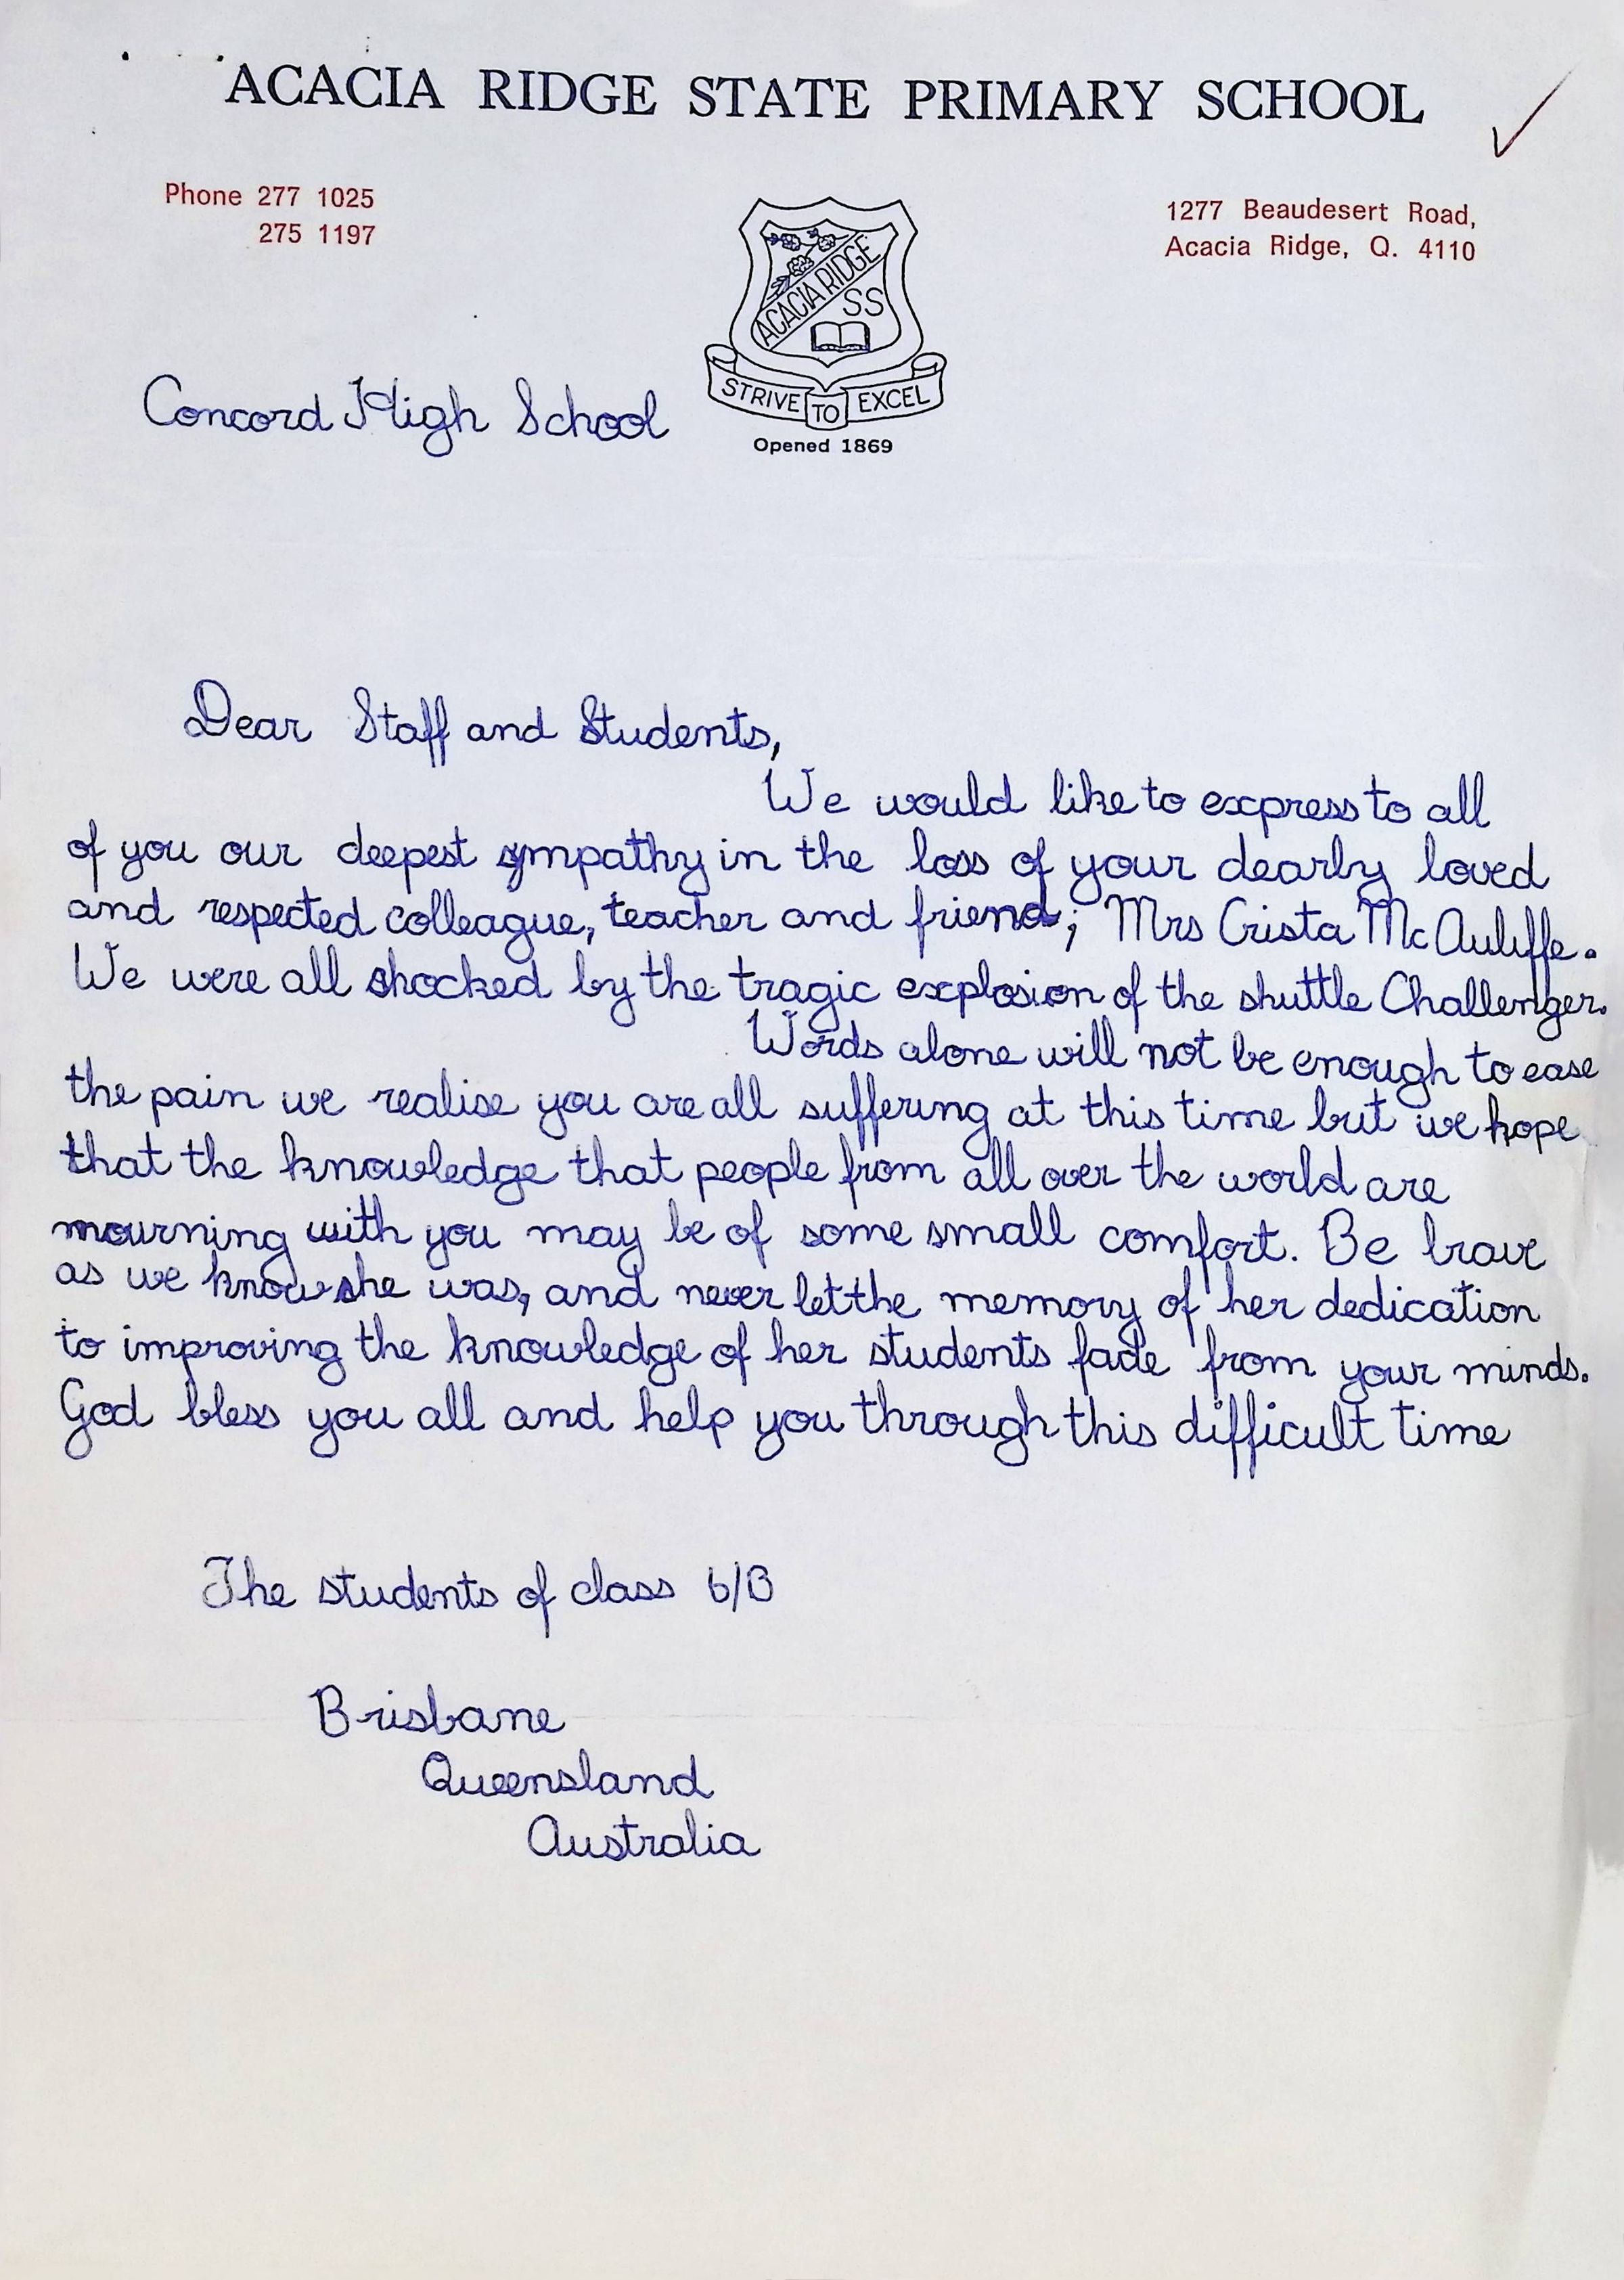 ACACIA RIDGE STATE PRIMARY SCHOOL
Phone 277 1025
275 1197
1277 Beaudesert Road,
Acacia Ridge, Q. 4110
ACACIA RIDGE
SS
STRIVE TO EXCEL
Opened 1869
Concord High School
Dear Staff and Students,
We would like to express to all
of you our deepest sympathy in the loss of your dearly loved
and respected colleague, teacher and friend; Mrs Crista McAuliffe.
We were all shocked by the tragic explosion of the shuttle Challenger.
Words alone will not be enough to ease
the pain we realise you are all suffering at this time but we hope
that the knowledge that people from all over the world are
mourning with you may be of some small comfort. Be brave
as we know she was, and never let the memory of her dedication
to improving the knowledge of her students fade from your minds.
God bless you all and help you through this difficult time
The students of class 6/B
Brisbane
Queensland
Australia